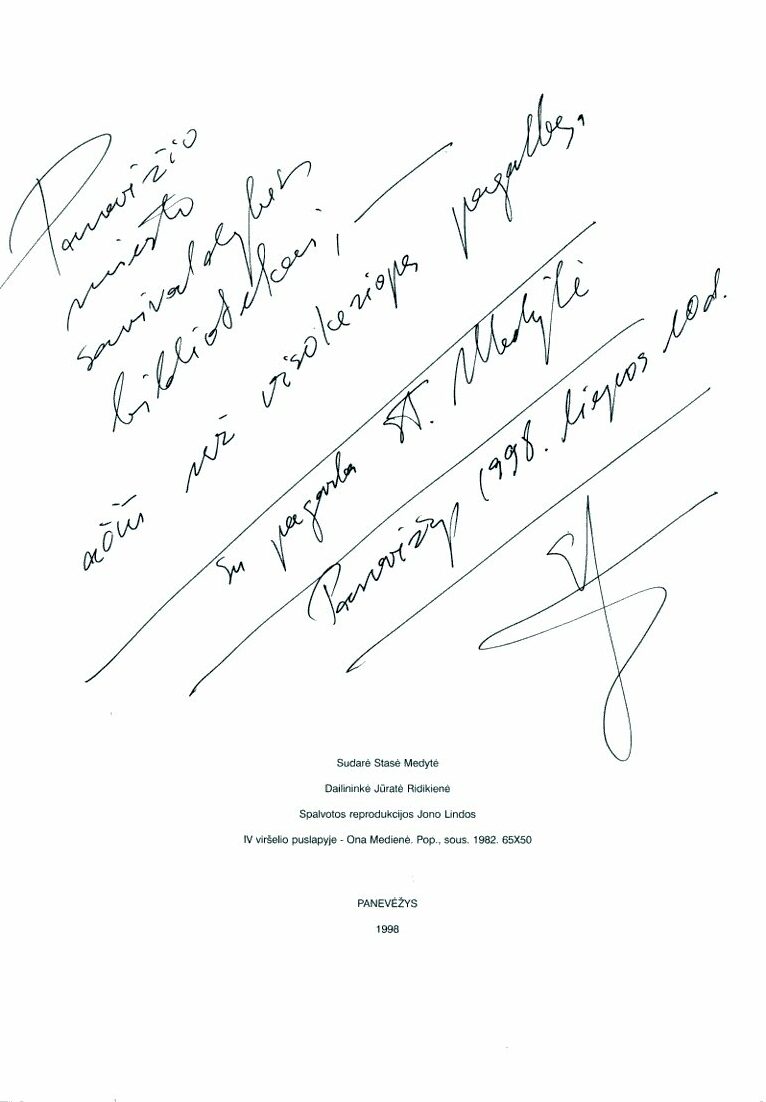 Panevėžio
miesto
savivaldybės
bibliotekai, —
ačiū už visokeriopą pagalbą.
Su pagarba St. Medytė
Panevėžy 1998. liepos 10d.
Sudarė Stasė Medytė
Dailininkė Jūratė Ridikienė
Spalvotos reprodukcijos Jono Lindos
IV viršelio puslapyje - Ona Medienė. Pop., sous. 1982. 65X50
PANEVĖŽYS
1998